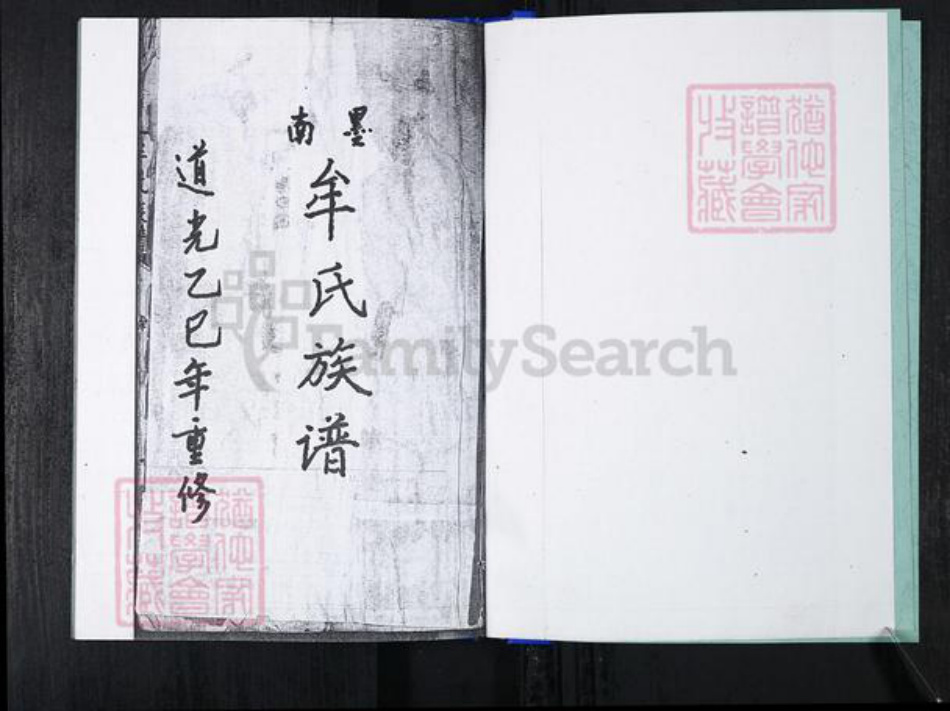 墨南
牟氏族谱
道光乙巳年重修
猶他家
譜學會
收藏
猶他家
譜學會
收藏
FamilySearch